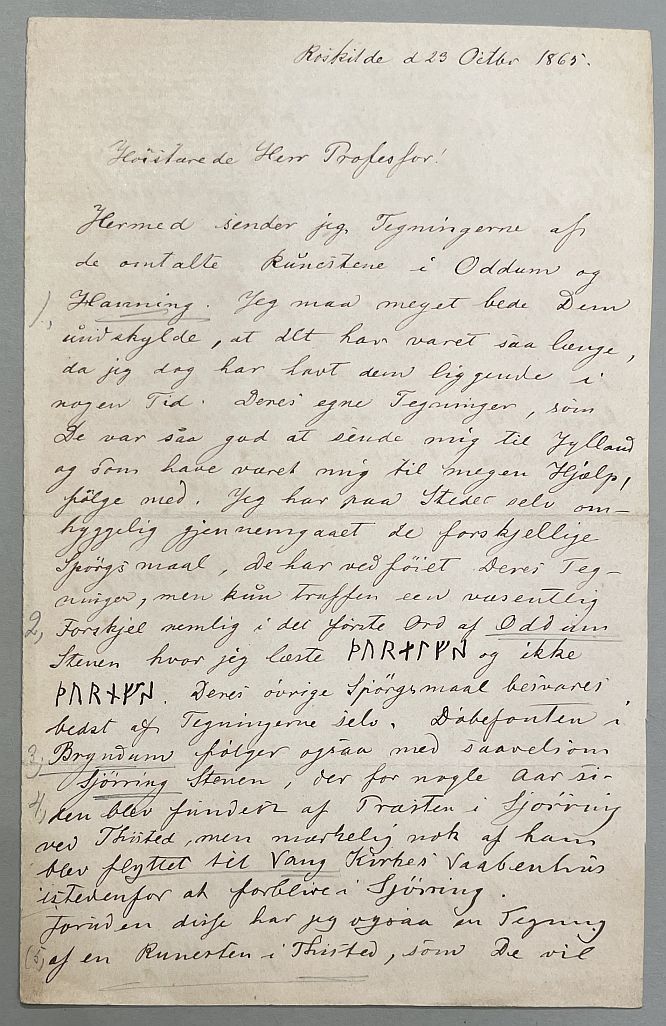 Roskilde d 23 Octbr 1865.
Höistærede Herr Professor!
Hermed sender jeg Tegningerne af
de omtalte Runestene i Oddum og
1), Hanning. Jeg maa meget bede Dem
undskylde, at det har varet saa længe,
da jeg dog har havt dem liggende i
nogen Tid. Deres egne Tegninger, som
De var saa god at sende mig til Jylland
og som have været mig til megen Hjælp,
følge med. Jeg har paa Stedet selv om-
hyggelig gjennemgaaet de forskjellige
Spörgsmaal, De har vedföiet Deres Teg-
ninger, men kun truffen een væsentlig
2, Forskjel nemlig i det første Ord af Oddum
Stenen hvor jeg læste ᚦᚢᚱᚬᛚᚠᛋ og ikke
ᚦᚢᚱᚬᚠᛋ. Deres övrige Spörgsmaal besvares
bedst af Tegningerne selv. Døbefonten i
3), Bryndum følger ogsaa med saavelsom
Sjörring Stenen, der for nogle Aar si-
4, den blev fundet af Præsten i Sjörring
ved Thisted, men mærkelig nok af ham
blev flyttet til Vang Kirkes Vaabenhus
istedenfor at forblive i Sjörring.
Foruden disse har jeg ogsaa en Tegning
(5) af en Runesten i Thisted, som De vil